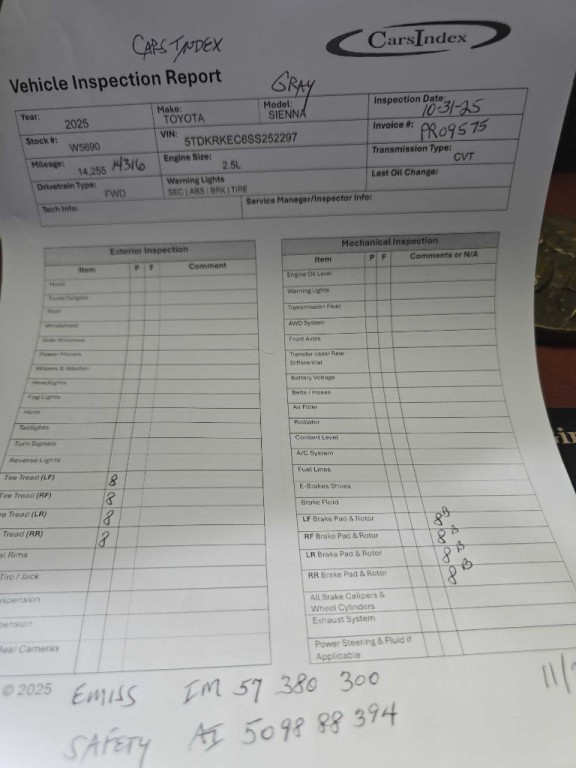 CARS INDEX
CarsIndex
Vehicle Inspection Report
GRAY
Year: 2025 Make: TOYOTA Model: SIENNA Inspection Date: 10-31-25
Stock #: W5690 VIN: 5TDKRKEC6SS252297 Invoice #: PR09575
Mileage: 14,255 14316 Engine Size: 2.5L Transmission Type: CVT
Drivetrain Type: FWD Warning Lights SEC | ABS | BRK | TIRE Last Oil Change:
Tech Info: Service Manager/Inspector Info:
Exterior Inspection
Item P F Comment
Hood
Trunk/Tailgate
Roof
Windshield
Side Windows
Power Mirrors
Wipers & Washer
Headlights
Fog Lights
Horn
Taillights
Turn Signals
Reverse Lights
Tire Tread (LF) 8
Tire Tread (RF) 8
re Tread (LR) 8
Tread (RR) 8
el Rims
Tire / Jack
spension
pension
Rear Cameras
Mechanical Inspection
Item P F Comments or N/A
Engine Oil Level
Warning Lights
Transmission Fluid
4WD System
Front Axles
Transfer case/ Rear
Differential
Battery Voltage
Belts / Hoses
Air Filter
Radiator
Coolant Level
A/C System
Fuel Lines
E-Brakes Shoes
Brake Fluid
LF Brake Pad & Rotor 8B
RF Brake Pad & Rotor 8B
LR Brake Pad & Rotor 8B
RR Brake Pad & Rotor 8B
All Brake Calipers &
Wheel Cylinders
Exhaust System
Power Steering & Fluid if
Applicable
© 2025
EMISS IM 57 380 300
SAFETY AI 5098 88 394
11/